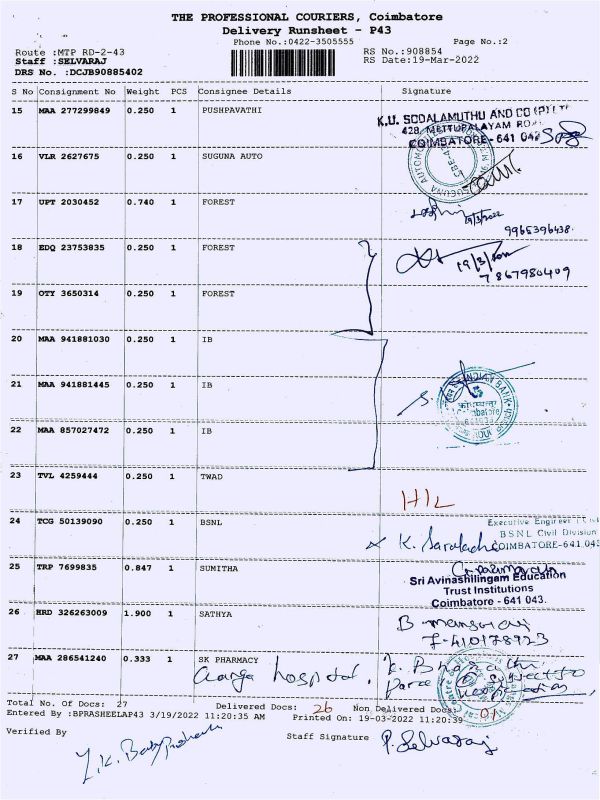 THE PROFESSIONAL COURIERS, Coimbatore
Delivery Runsheet - P43
Phone No.:0422-3505555 Page No.:2
Route :MTP RD-2-43 RS No.:908854
Staff :SELVARAJ RS Date:19-Mar-2022
DRS No. :DCJB90885402
S No Consignment No Weight PCS Consignee Details Signature
15 MAA 277299849 0.250 1 PUSHPAVATHI
K.U. SODALAMUTHU AND CO (P) LTD
428, METTUPALAYAM ROAD
COIMBATORE - 641 043
16 VLR 2627675 0.250 1 SUGUNA AUTO
17 UPT 2030452 0.740 1 FOREST
19/3/2022
9965396438
18 EDQ 23753835 0.250 1 FOREST
7867980409
19 OTY 3650314 0.250 1 FOREST
20 MAA 941881030 0.250 1 IB
21 MAA 941881445 0.250 1 IB
INDIAN BANK
22 MAA 857027472 0.250 1 IB
23 TVL 4259444 0.250 1 TWAD
HIL
24 TCG 50139090 0.250 1 BSNL
Executive Engineer (Civil
BSNL Civil Division
COIMBATORE-641.043
25 TRP 7699835 0.847 1 SUMITHA
Sri Avinashilingam Education
Trust Institutions
Coimbatore - 641 043.
26 HRD 326263009 1.900 1 SATHYA
27 MAA 286541240 0.333 1 SK PHARMACY
hospital.
Total No. Of Docs: 27 Delivered Docs: 26 Non Delivered Docs: 01
Entered By :BPRASHEELAP43 3/19/2022 11:20:35 AM Printed On: 19-03-2022 11:20:39
Verified By Staff Signature P. Selvaraj